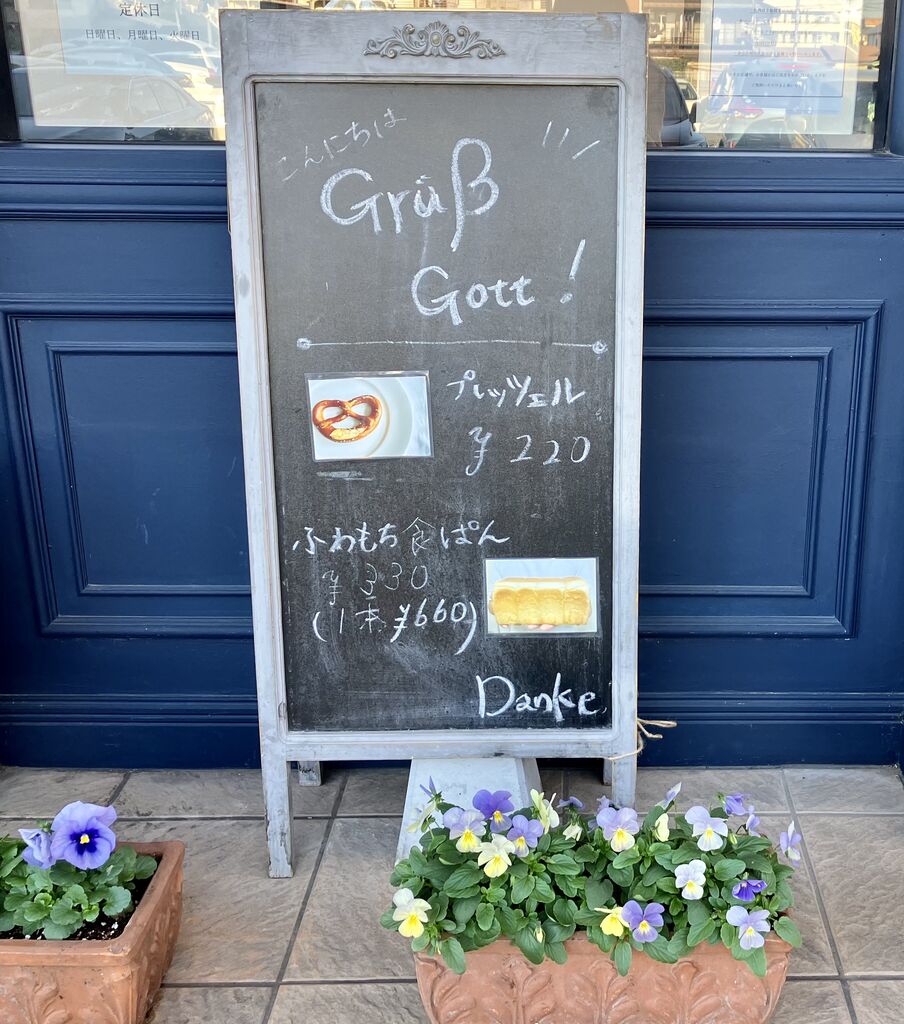 定休日
日曜日、月曜日、火曜日
こんにちは
Grüß
Gott!
プレッツェル
¥220
ふわもち食ぱん
¥330
(1本¥660)
Danke